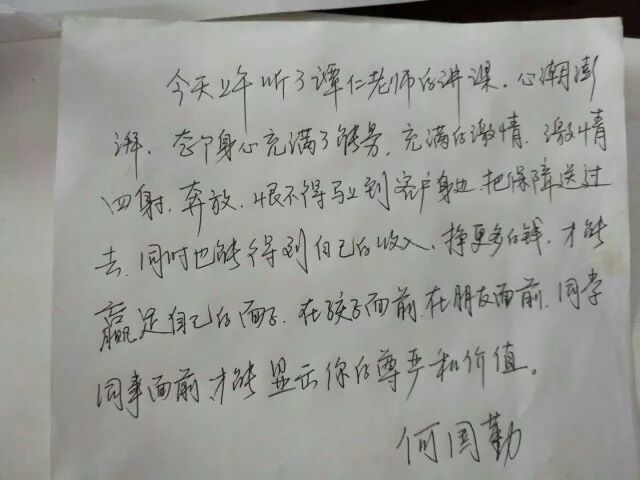 今天上午听了谭仁老师的讲课。心潮澎
湃，整个身心充满了能量，充满的激情，激情
四射，奔放，恨不得马上到客户身边，把保障送过
去，同时也能得到自己的收入，挣更多的钱，才能
赢足自己的面子，在孩子面前，在朋友面前，同学
同事面前，才能显示你的尊严和价值。
何国勤